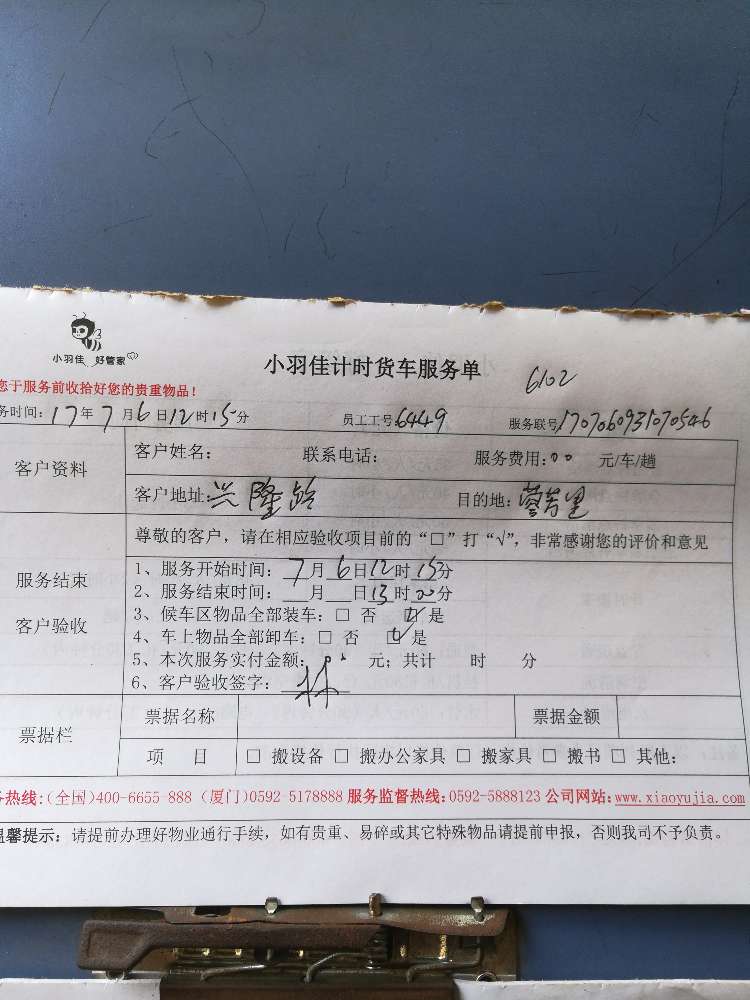 小羽佳 好管家
小羽佳计时货车服务单
6102
您于服务前收拾好您的贵重物品！
务时间：17年7月6日12时15分 员工工号:6449 服务联号1707060931070546
客户资料
客户姓名： 联系电话： 服务费用: 元/车/趟
客户地址: 兴隆路 目的地:
尊敬的客户，请在相应验收项目前的“□”打“√”，非常感谢您的评价和意见
服务结束
客户验收
1、服务开始时间：7月6日12时15分
2、服务结束时间： 月 日13时20分
3、候车区物品全部装车：□ 否 ☑ 是
4、车上物品全部卸车：□ 否 ☑ 是
5、本次服务实付金额： 元；共计 时 分
6、客户验收签字：林
票据栏
票据名称 票据金额
项 目 □ 搬设备 □ 搬办公家具 □ 搬家具 □ 搬书 □ 其他：
务热线：（全国）400-6655-888 （厦门）0592-5178888 服务监督热线：0592-5888123 公司网站：www.xiaoyujia.com
温馨提示：请提前办理好物业通行手续，如有贵重、易碎或其它特殊物品请提前申报，否则我司不予负责。